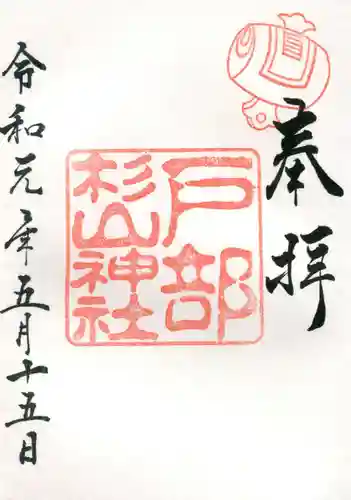 奉拝
戸部
杉山神社
令和元年五月十五日